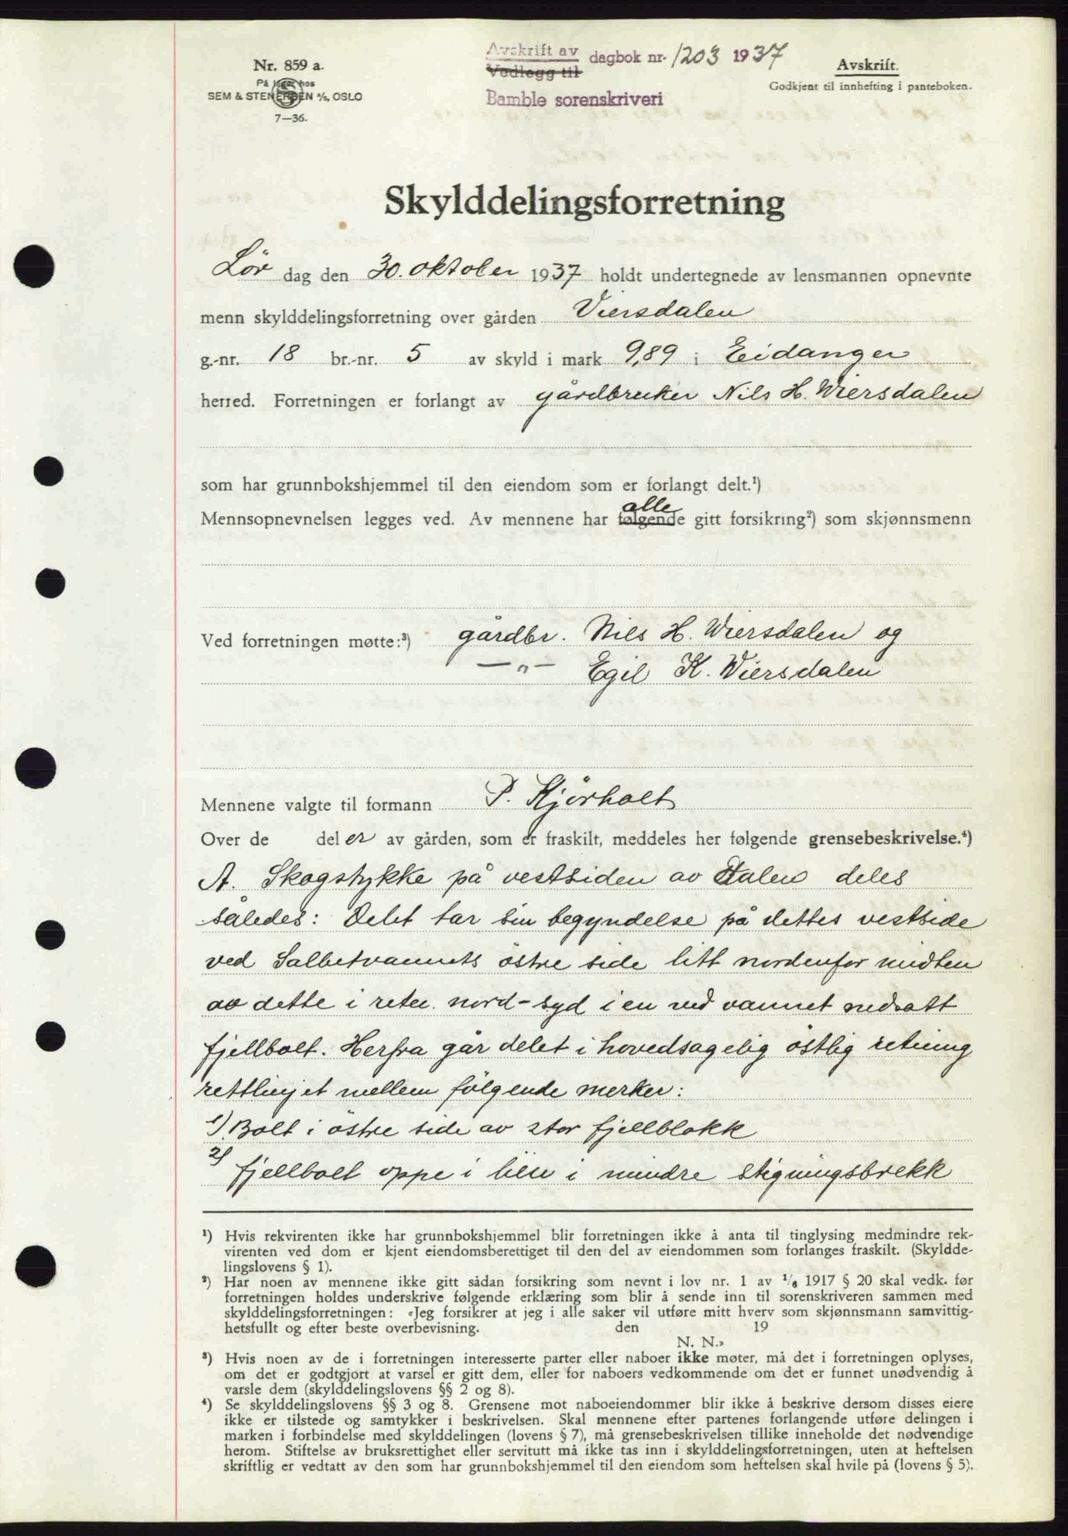 Nr. 859 a.
På lager hos
SEM & STENERSEN A/S, OSLO
7—36.
Avskrift av
Vedlegg til
dagbok nr. 1203 1937
Bamble sorenskriveri
Avskrift.
Godkjent til innhefting i panteboken.
Skylddelingsforretning
Lør dag den 30. oktober 1937 holdt undertegnede av lensmannen opnevnte
menn skylddelingsforretning over gården Viersdalen
g.-nr. 18 br.-nr. 5 av skyld i mark 9,89 i Eidanger
herred. Forretningen er forlangt av gårdbruker Nils H. Wiersdalen
som har grunnbokshjemmel til den eiendom som er forlangt delt.¹)
alle
Mennsopnevnelsen legges ved. Av mennene har følgende gitt forsikring²) som skjønnsmenn
Ved forretningen møtte:³) gårdbr. Nils H. Wiersdalen og
—„— Egil K. Wiersdalen
Mennene valgte til formann P. Kjørholt
Over de del er av gården, som er fraskilt, meddeles her følgende grensebeskrivelse.⁴)
A. Skogstykke på vestsiden av dalen deles
således: Delet tar sin begyndelse på dettes vestside
ved Salbetvannets østre side litt nordenfor midten
av dette i retn. nord-syd i en ved vannet nedsatt
fjellbolt. Herfra går delet i hovedsagelig østlig retning
rettlinjet mellem følgende merker:
1) Bolt i østre side av stor fjellblokk
2) fjellbolt oppe i lien i mindre stigningsbrekk
¹) Hvis rekvirenten ikke har grunnbokshjemmel blir forretningen ikke å anta til tinglysing medmindre rek-
virenten ved dom er kjent eiendomsberettiget til den del av eiendommen som forlanges fraskilt. (Skyldde-
lingslovens § 1).
²) Har noen av mennene ikke gitt sådan forsikring som nevnt i lov nr. 1 av ¹/₆ 1917 § 20 skal vedk. før
forretningen holdes underskrive følgende erklæring som blir å sende inn til sorenskriveren sammen med
skylddelingsforretningen: «Jeg forsikrer at jeg i alle saker vil utføre mitt hverv som skjønnsmann samvittig-
hetsfullt og efter beste overbevisning. den 19
N. N.»
³) Hvis noen av de i forretningen interesserte parter eller naboer ikke møter, må det i forretningen oplyses,
om det er godtgjort at varsel er gitt dem, eller for naboers vedkommende om det er funnet unødvendig å
varsle dem (skylddelingslovens §§ 2 og 8).
⁴) Se skylddelingslovens §§ 3 og 8. Grensene mot naboeiendommer blir ikke å beskrive dersom disses eiere
ikke er tilstede og samtykker i beskrivelsen. Skal mennene efter partenes forlangende utføre delingen i
marken i forbindelse med skylddelingen (lovens § 7), må grensebeskrivelsen tillike inneholde det nødvendige
herom. Stiftelse av bruksrettighet eller servitutt må ikke tas inn i skylddelingsforretningen, uten at heftelsen
skriftlig er vedtatt av den som har grunnbokshjemmel til den eiendom som heftelsen skal hvile på (lovens § 5).